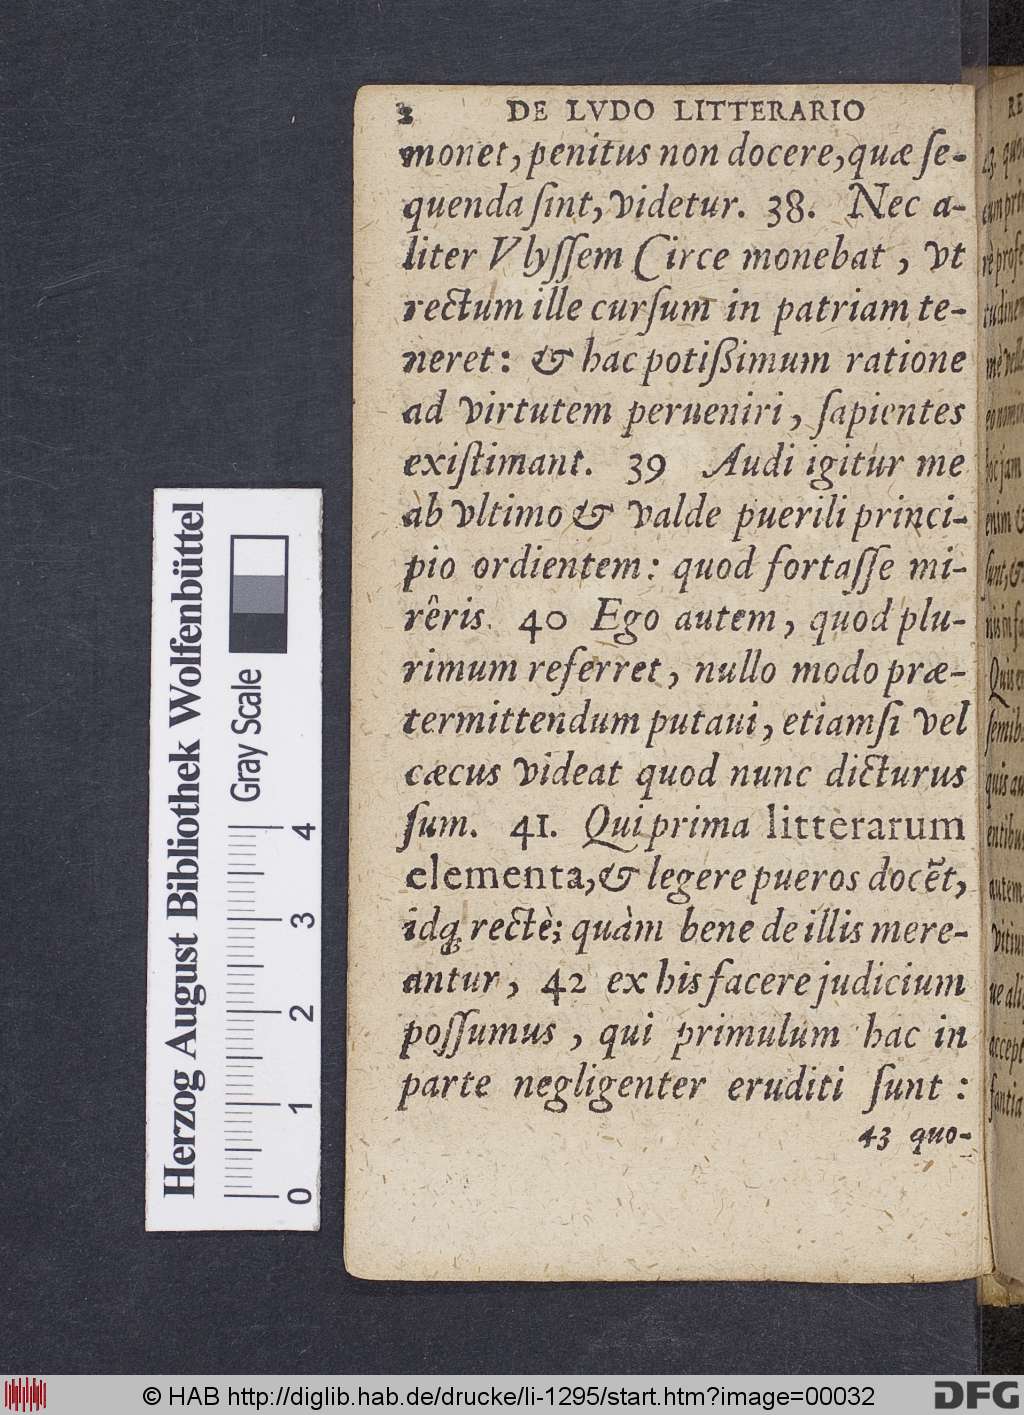 2 DE LVDO LITTERARIO
monet, penitus non docere, quæ ſe-
quenda ſint, videtur. 38. Nec a-
liter Vlyſſem Circe monebat, vt
rectum ille curſum in patriam te-
neret: & hac potißimum ratione
ad virtutem perueniri, ſapientes
exiſtimant. 39 Audi igitur me
ab vltimo & valde puerili princi-
pio ordientem: quod fortaſſe mi-
rêris. 40 Ego autem, quod plu-
rimum referret, nullo modo præ-
termittendum putaui, etiamſi vel
cæcus videat quod nunc dicturus
ſum. 41. Qui prima litterarum
elementa, & legere pueros docẽt,
idq; rectè; quàm bene de illis mere-
antur, 42 ex his facere judicium
poſſumus, qui primulum hac in
parte negligenter eruditi ſunt:
43 quo-
Herzog August Bibliothek Wolfenbüttel
Gray Scale
0 1 2 3 4
© HAB http://diglib.hab.de/drucke/li-1295/start.htm?image=00032
DFG